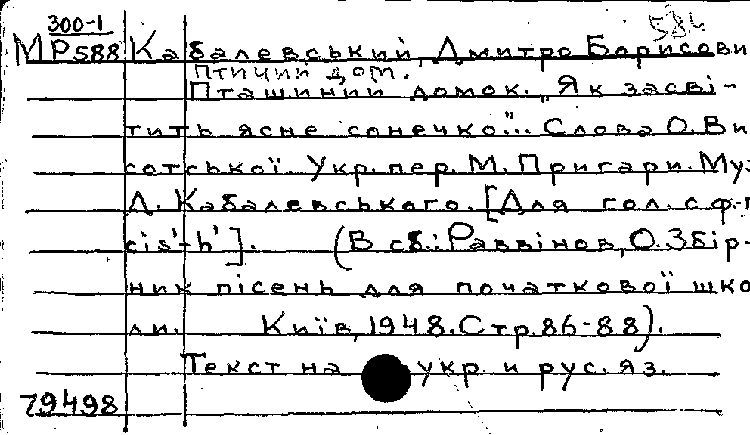 300-1 584
МР588 Кабалевський, Дмитро Борисови
Птичий дом.
Пташиний домок. „Як засві-
тить ясне сонечко"... Слова О. Ви
сотської. Укр. пер. М. Пригари. Муз
Д. Кабалевського. [Для гол. с ф-п
cis'-h']. (В сб.: Раввінов, О. Збір-
ник пісень для початкової шко
ли. Київ, 1948. Стр. 86-88).
Текст на укр. и рус. яз.
79498